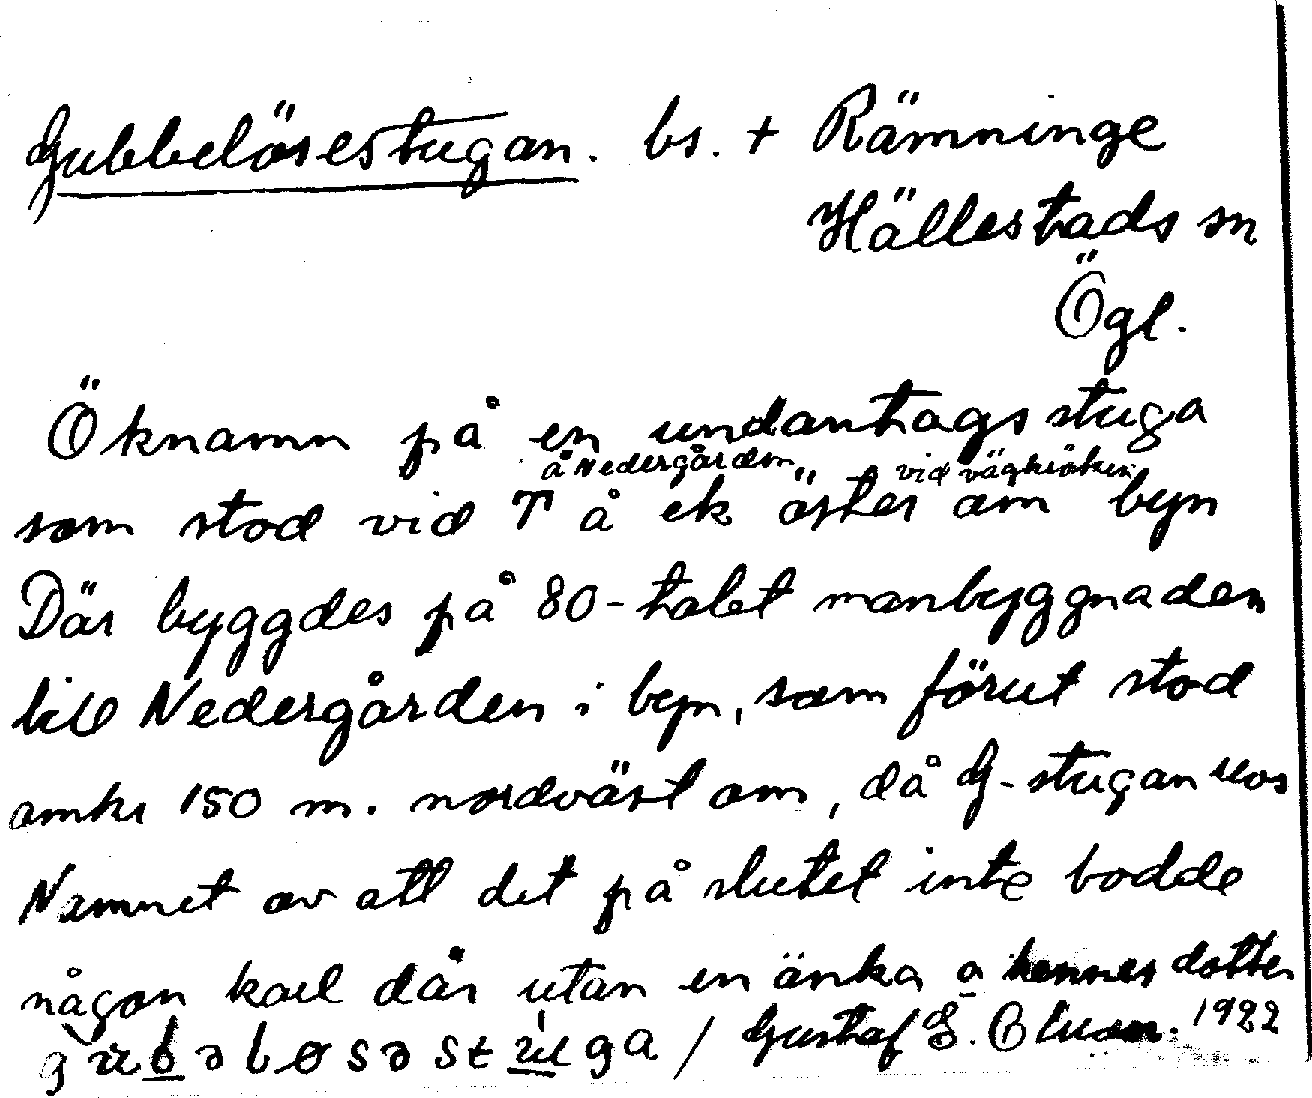 Gubbelösestugan. bs. + Rämninge
Hällestads sn
Ögl.
Öknamn på en undantagsstuga
å Nedergården vid vägkröken
som stod vid T å ek öster om byn
Där byggdes på 80-talet manbyggnaden
till Nedergården i byn, som förut stod
omkr 150 m. nordväst om, då G-stugan revs
Namnet av att det på slutet inte bodde
någon karl där utan en änka o hennes dotter
/ Gustaf E. 1922